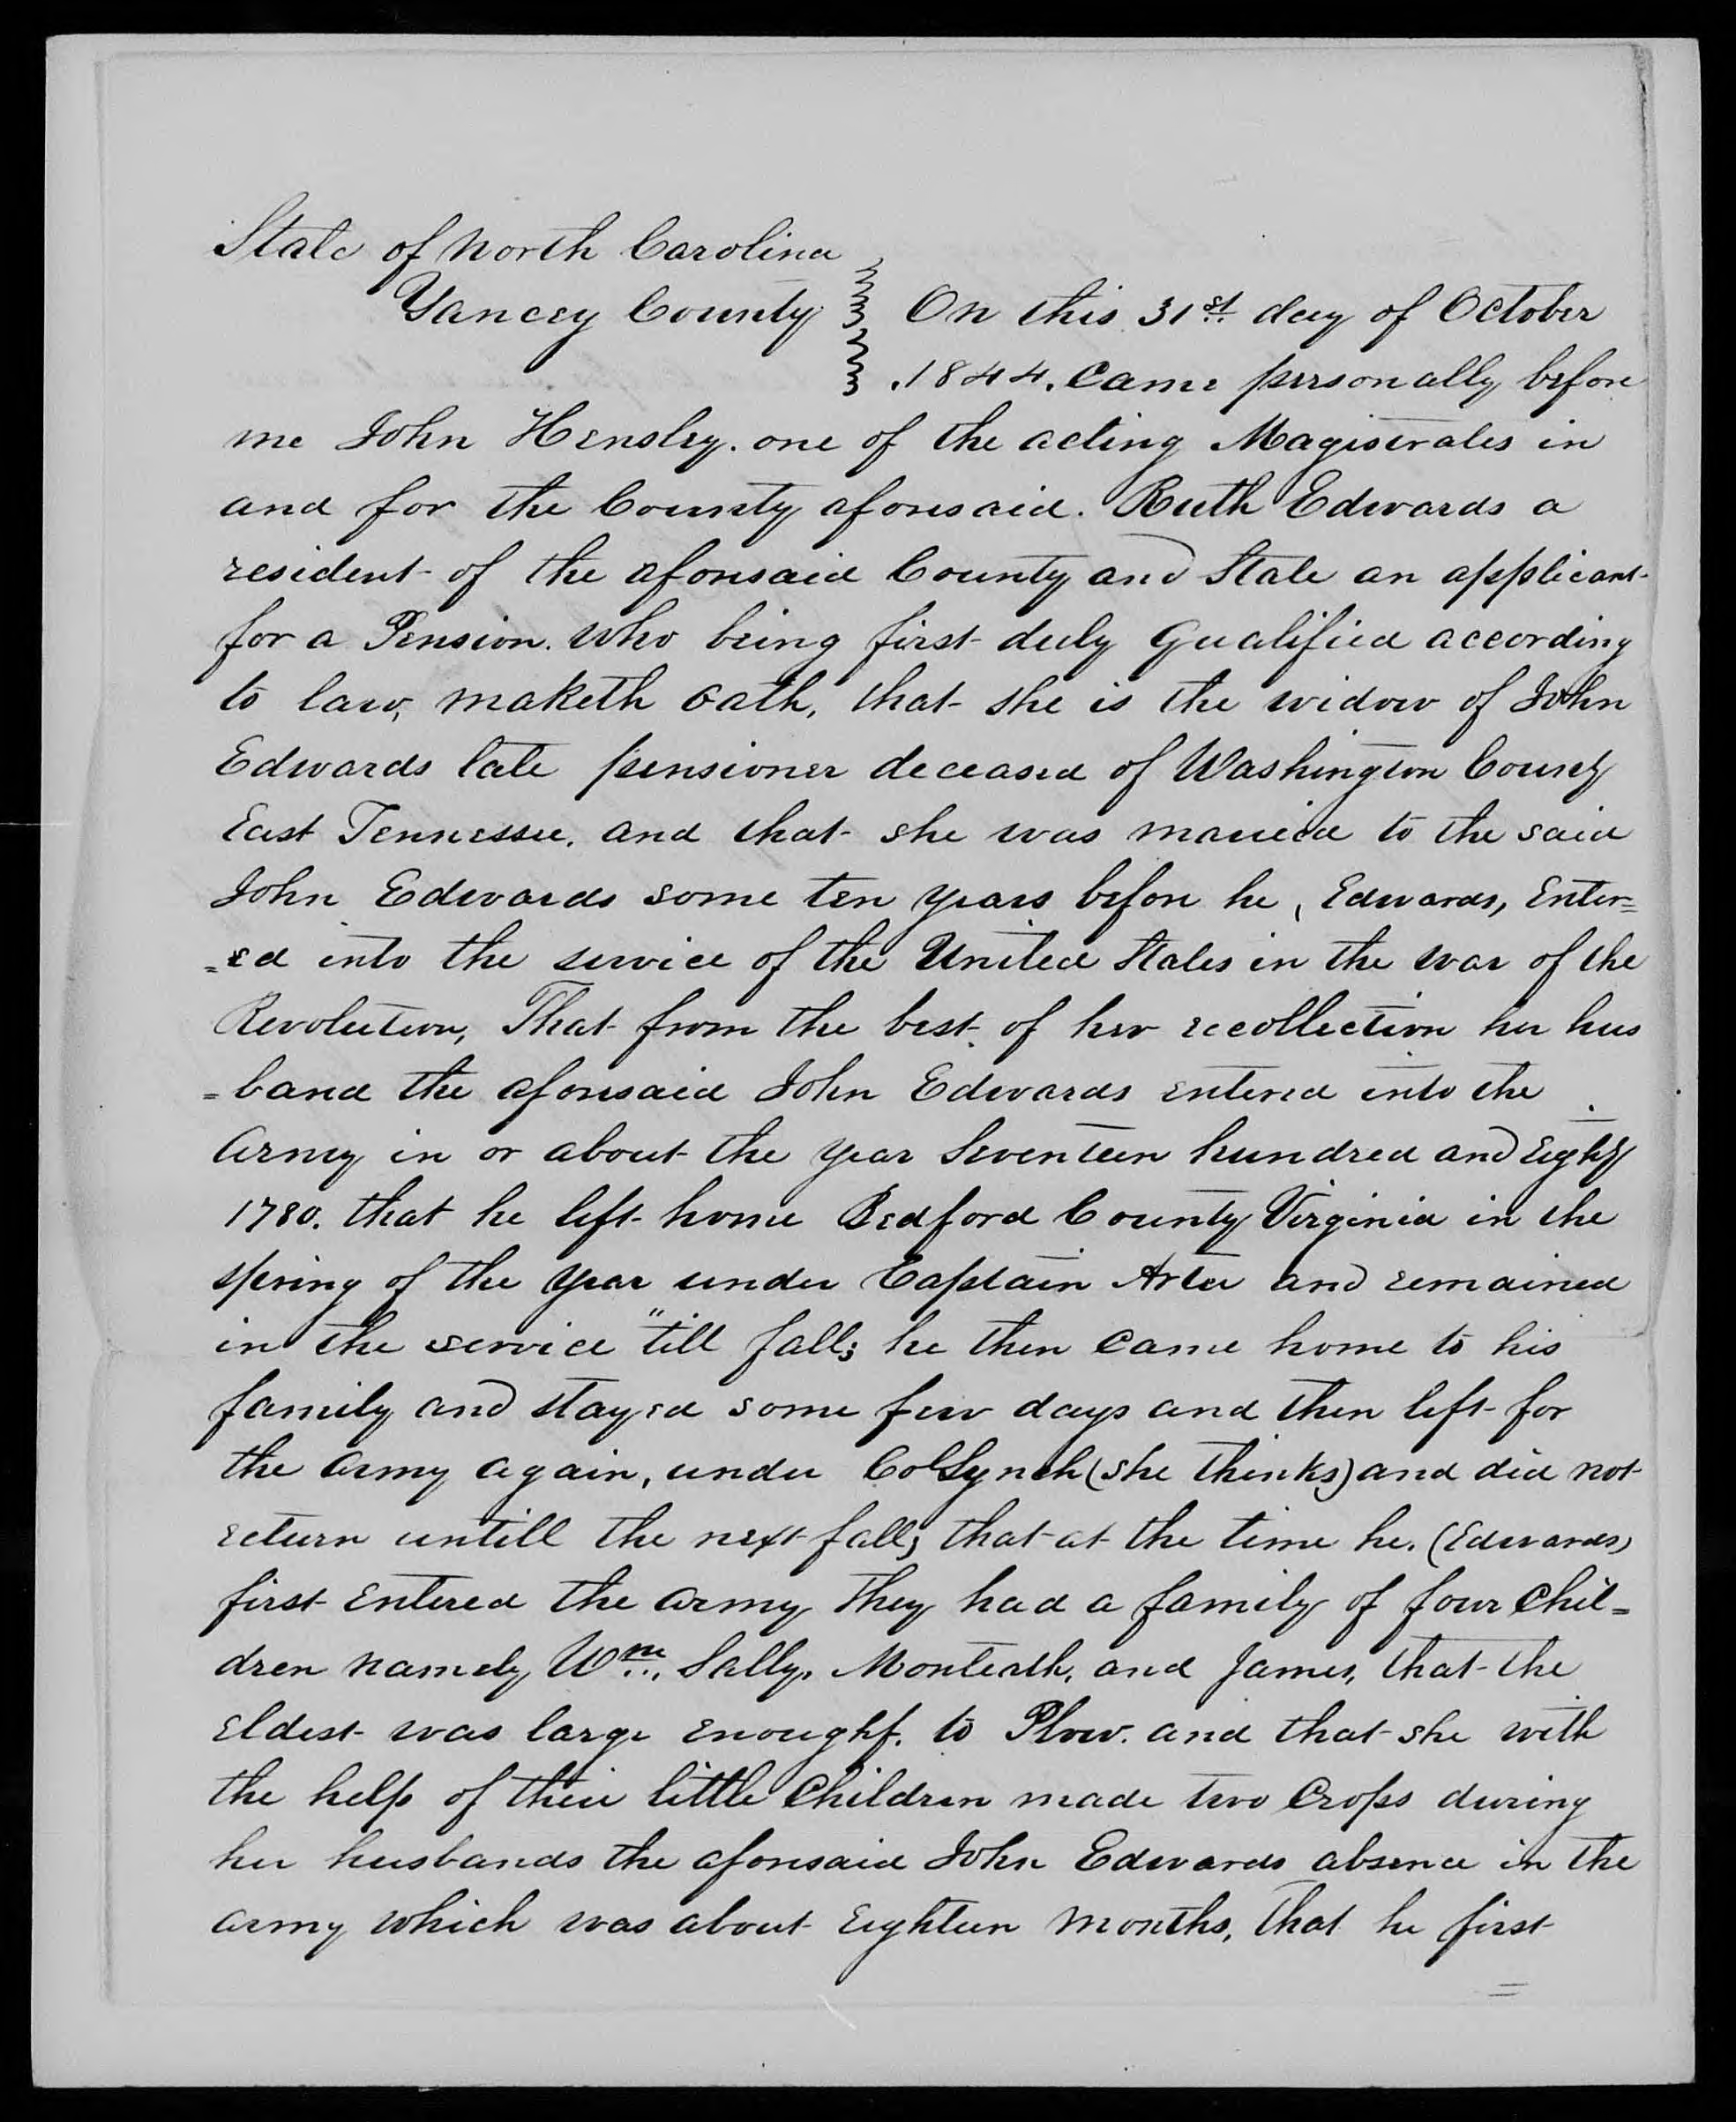 State of North Carolina
Yancey County } On this 31st day of October
1844. Came personally before
me John Hensley. one of the acting Magistrates in
and for the County aforesaid. Ruth Edwards a
resident of the aforesaid County and State an applicant
for a Pension. Who being first duly qualified according
to law, maketh oath, that she is the widow of John
Edwards late pensioner deceased of Washington County
East Tennessee. and that she was married to the said
John Edwards some ten years before he, Edwards, Enter=
=ed into the service of the United States in the war of the
Revolution, That from the best of her recollection her hus
=band the aforesaid John Edwards entered into the
Army in or about the year Seventeen hundred and Eighty
1780. that he left home Bedford County Virginia in the
spring of the year under Captain Arter and remained
in the service "till fall; he then came home to his
family and stayed some few days and then left for
the army again, under Col Lynch (she thinks) and did not
return untill the next fall; that at the time he. (Edwards)
first entered the army they had a family of four Chil=
dren namely Wm., Sally, Monteath, and James, that the
eldest was large enough. to Plow. and that she with
the help of their little Children made two Crops during
her husbands the aforesaid John Edwards absence in the
army which was about Eighteen Months, that he first